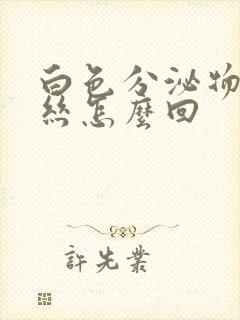 白色分泌物
丝怎麼回
許先業